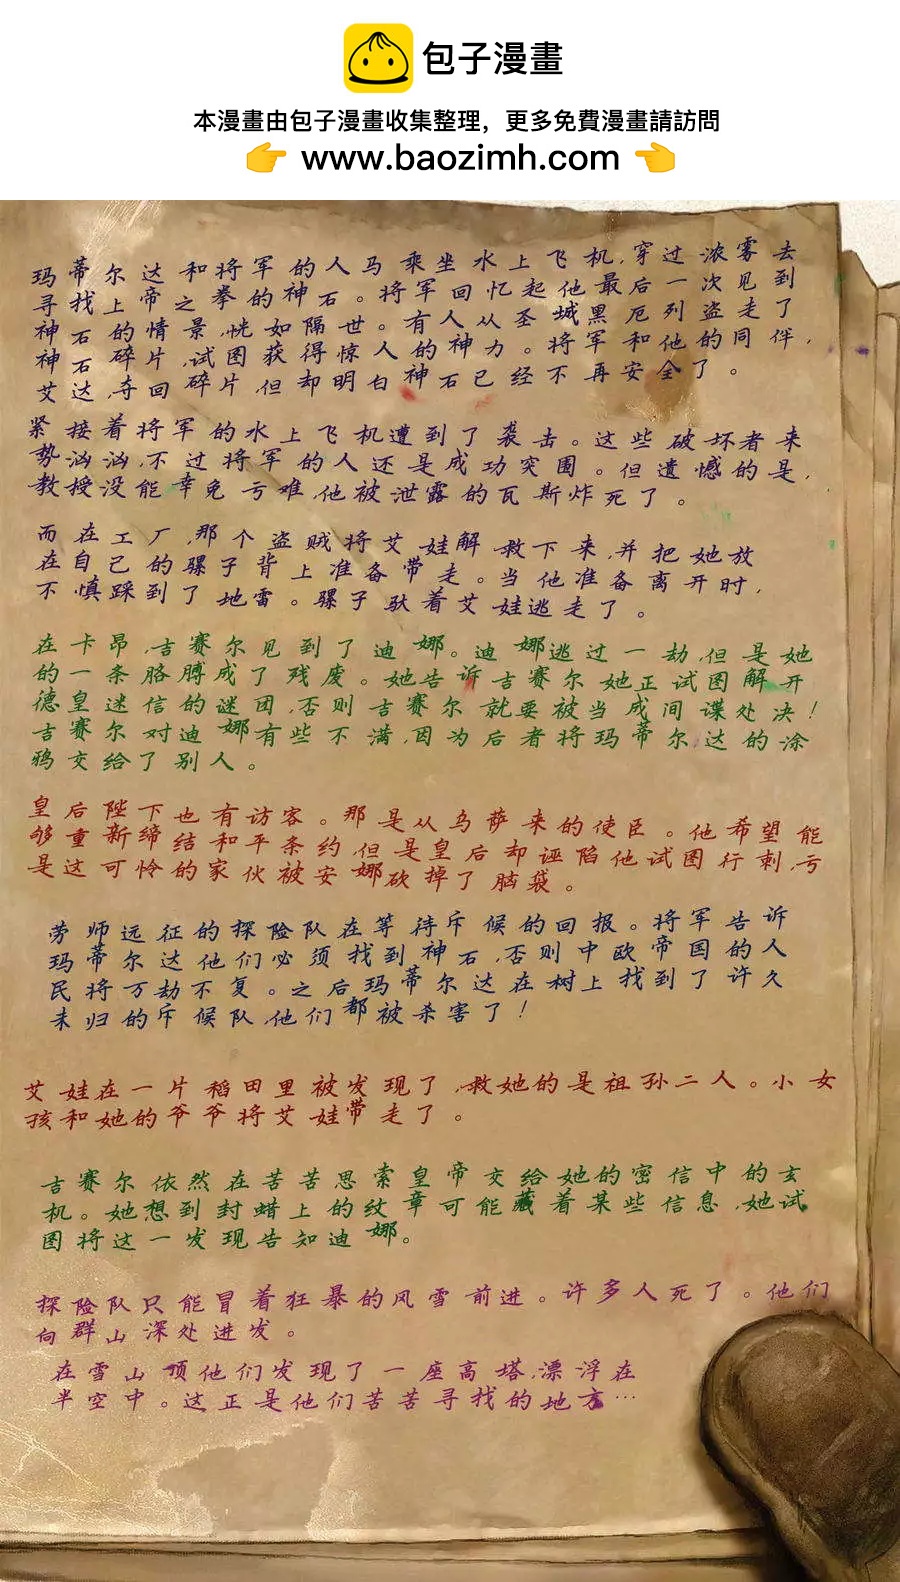 包子漫畫
本漫畫由包子漫畫收集整理，更多免費漫畫請訪問
www.baozimh.com
玛蒂尔达和将军的人马乘坐水上飞机,穿过浓雾去
寻找上帝之拳的神石。将军回忆起他最后一次见到
神石的情景,恍如隔世。有人从圣城黑厄列盗走了
神石碎片,试图获得惊人的神力。将军和他的同伴,
艾达,夺回碎片,但却明白神石已经不再安全了。
紧接着将军的水上飞机遭到了袭击。这些破坏者来
势汹汹,不过将军的人还是成功突围。但遗憾的是,
教授没能幸免亏难,他被泄露的瓦斯炸死了。
而在工厂,那个盗贼将艾娃解救下来,并把她放
在自己的骡子背上准备带走。当他准备离开时,
不慎踩到了地雷。骡子驮着艾娃逃走了。
在卡昂,吉赛尔见到了迪娜。迪娜逃过一劫,但是她
的一条胳膊成了残废。她告诉吉赛尔她正试图解开
德皇迷信的谜团,否则吉赛尔就要被当成间谍处决!
吉赛尔对迪娜有些不满,因为后者将玛蒂尔达的涂
鸦交给了别人。
皇后陛下也有访客。那是从乌萨来的使臣。他希望能
够重新缔结和平条约,但是皇后却诬陷他试图行刺,亏
是这可怜的家伙被安娜砍掉了脑袋。
劳师远征的探险队在等待斥候的回报。将军告诉
玛蒂尔达他们必须找到神石,否则中欧帝国的人
民将万劫不复。之后玛蒂尔达在树上找到了许久
未归的斥候队,他们都被杀害了!
艾娃在一片稻田里被发现了,救她的是祖孙二人。小女
孩和她的爷爷将艾娃带走了。
吉赛尔依然在苦苦思索皇帝交给她的密信中的玄
机。她想到封蜡上的纹章可能藏着某些信息,她试
图将这一发现告知迪娜。
探险队只能冒着狂暴的风雪前进。许多人死了。他们
向群山深处进发。
在雪山顶他们发现了一座高塔,漂浮在
半空中。这正是他们苦苦寻找的地方…